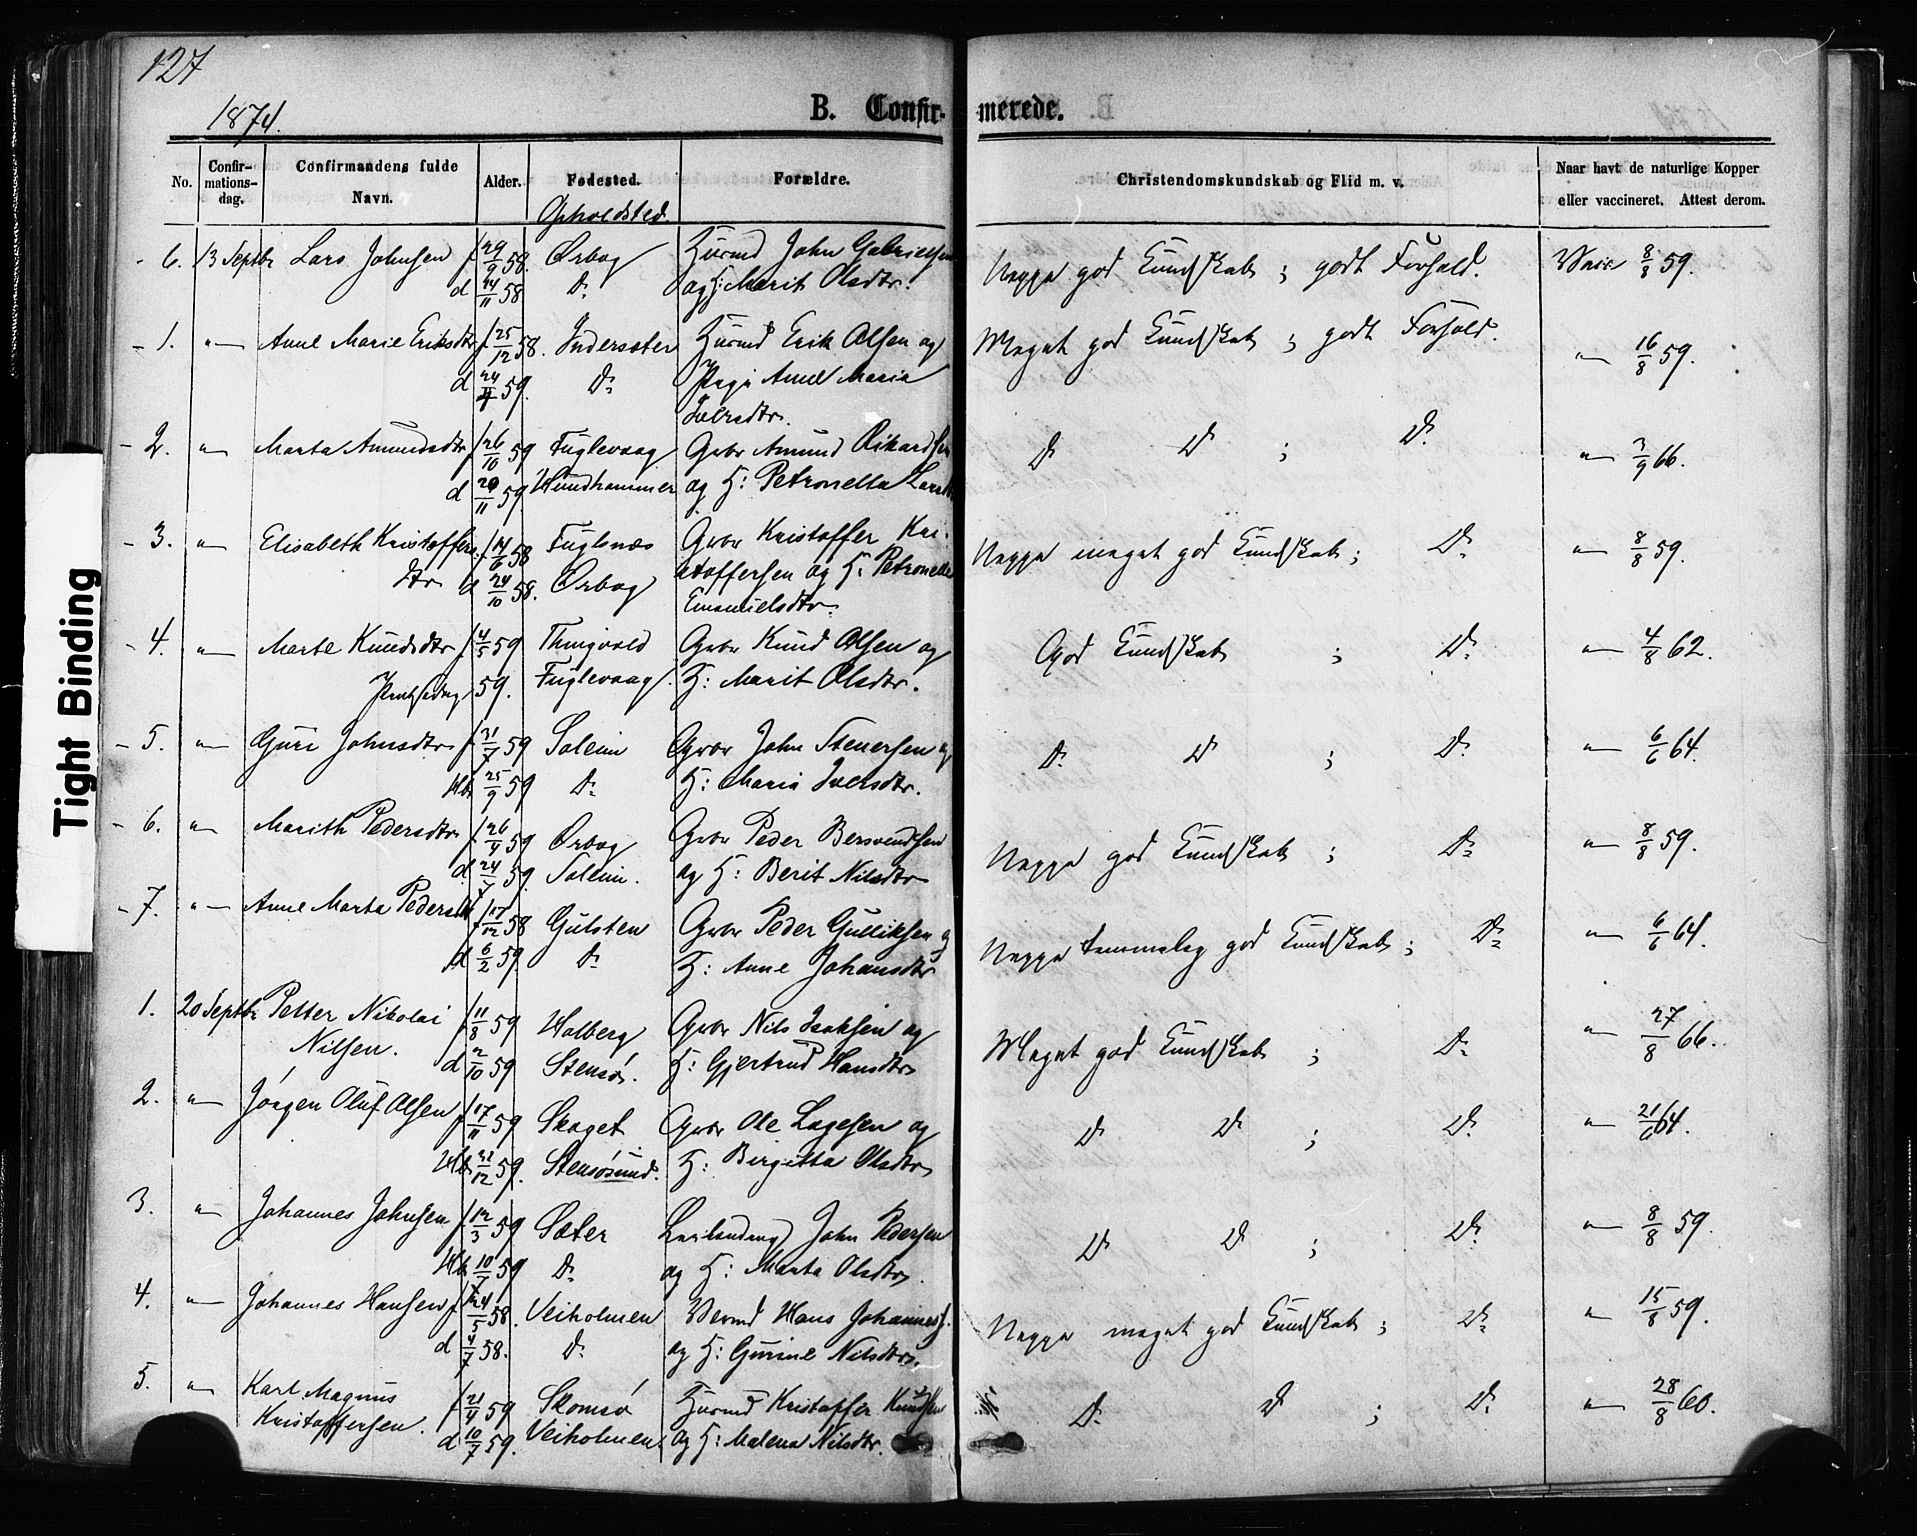 127
1874.
B. Confir- merede.
No. Confir-mations-dag. Confirmandens fulde Navn. Alder. Fødested. Forældre. Christendomskundskab og Flid m. v. Naar havt de naturlige Kopper eller vaccineret. Attest derom.
Opholdsted.
6. 13 Septbr Lars Johnsen f 29/9 58. Ørbog Husmd John Gabrielsen Neppe god Kundskab ; godt Forhold. Vacc 8/8 59.
d 24/11 58 Do og H: Marit Olsdtr.
1. " Anne Marie Eriksdtr f 25/12 58. Indersæter Husmd Erik Olsen og Meget god Kundskab ; godt Forhold. " 16/8 59.
d 24/4 59. Do Pige Anne Maria
Iversdtr.
2. " Marta Amundsdtr f 26/10 59 Fuglevaag Gbr Amund Rikardsen Do Do ; Do " 3/9 66.
d 20/11 59 Hundhammer og H: Petronella Larsdtr
3. " Elisabeth Kristoffers f 14/6 58 Fuglsnæs Gbr Kristoffer Kri- Neppe meget god Kundskab ; Do " 8/8 59.
dtr d 24/10 58. Ørbog stoffersen og H: Petronelle
Emanuelsdtr.
4. " Marte Knudsdtr f 4/5 59 Thingvold Gbr Knud Olsen og God Kundskab ; Do " 4/8 62.
59. Fuglevaag H: Marit Olsdtr.
5. " Guri Johnsdtr f 31/7 59 Soleim Gbr John Stenersen og Do Do ; Do " 6/6 64.
Hd 25/9 59 Do H: Maria Iversdtr.
6. " Marith Pedersdtr f 26/4 59 Ørbog Gbr Peder Bersvendsen Neppe god Kundskab ; Do " 8/8 59.
d 24/7 59 Soleim. og H: Berit Nilsdtr
7. " Anne Marta Pedersdtr f 17/12 58 Gulsten Gbr Peder Gulliksen og Neppe temmelig god Kundskab ; Do " 6/6 64.
d 6/2 59 Do H: Anne Johansdtr
1. 20 Septbr Petter Nikolai f 11/8 59 Holberg Gbr Nils Isaksen og Meget god Kundskab ; Do " 27/8 66.
Nilsen. d 2/10 59 Stensø. H: Gjertrud Hansdtr
2. " Jörgen Oluf Olsen f 17/11 59 Skaget Gbr Ole Lagesen og Do Do ; Do " 21/6 64.
Hd 21/12 59. Stensösund. H: Birgitta Olsdtr
3. " Johannes Johnsen f 12/3 59 Sæter John Pedersen Do Do ; Do " 8/8 59.
Hd 10/7 59 Do og H: Marta Olsdtr.
4. " Johannes Hansen f 24/5 58. Veiholmen Hans Johannes. Neppe meget god Kundskab ; Do " 15/8 59.
d 4/7 58. Do og H: Gurine Nilsdtr.
5. " Karl Magnus f 21/4 59 Skomsø Husmd Kristoffer Knudsen Do Do ; Do " 28/8 60.
Kristoffersen. d 10/7 59. Veiholmen og H: Malena Nilsdtr.
Tight Binding